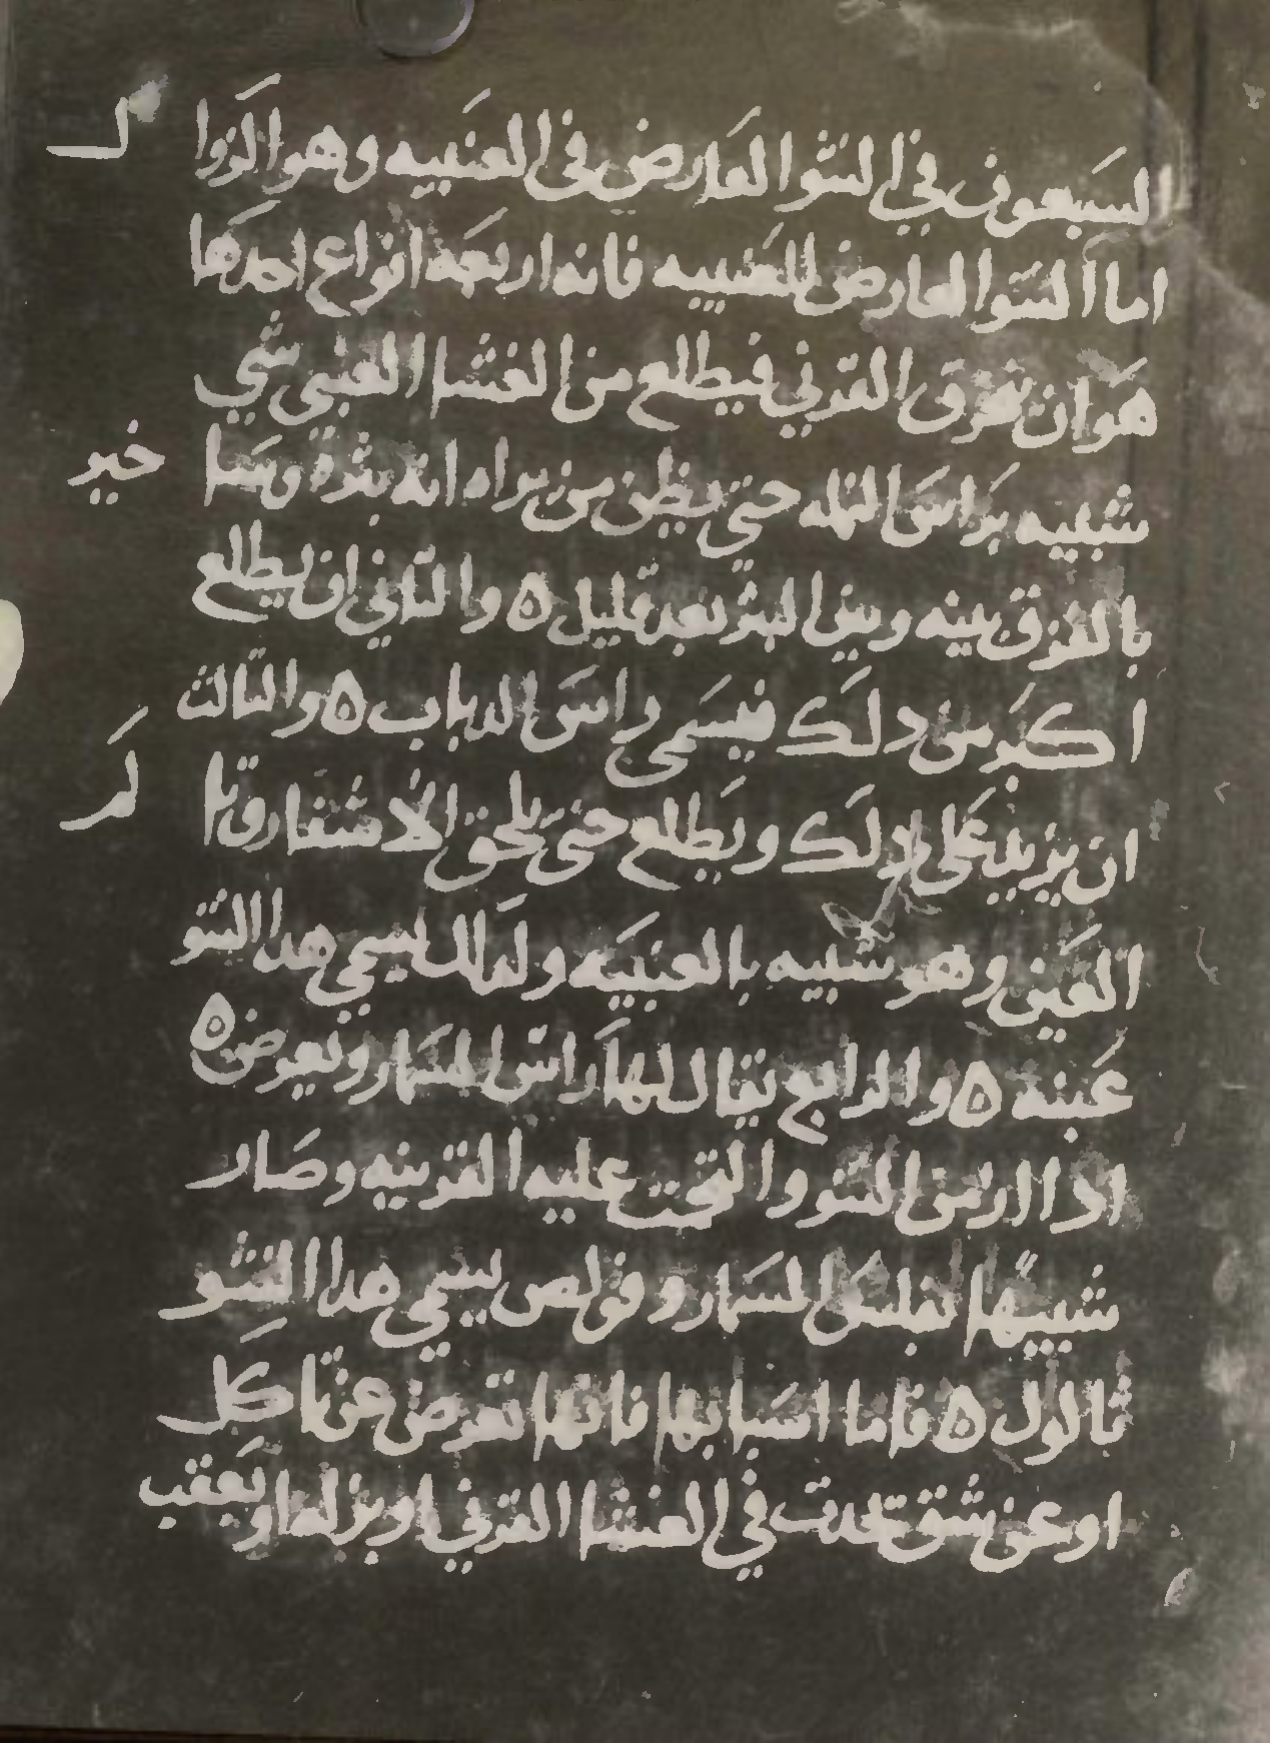 السبعون في النتوا العارض في العنبيه وهوا لزوا
اما النتوا العارض للعنبيه فانه اربعه انواع احدها
هوان تفرق القرني فيطلع من الغشا العنبي شي
شبيه براس النمله حتى يظن من يراه انه بثرة وسا
خير
بالفرق بينه وبين البثر بعد قليل ٥ والثاني ان يطلع
اكبر من دلك فيسمى راس الدباب ٥ والثالث
ان يزيد على دلك ويطلع حتى يلحق الاشفار وتا
العين وهو شبيه بالعنبيه ولدلك يسمي هدا النتو
عنبه ٥ والرابع يقال لها راس المسمار ويعرض ٥
ادا ازمن النتو والتحمت عليه القرنيه وصار
شبيها بفلس المسمار وقولص يسمي هدا النتو
ثالول ٥ فاما اسبابها فانها تعرض عن تاكل
او عن شق تحدث في الغشا القرني او بزلها ويعقب